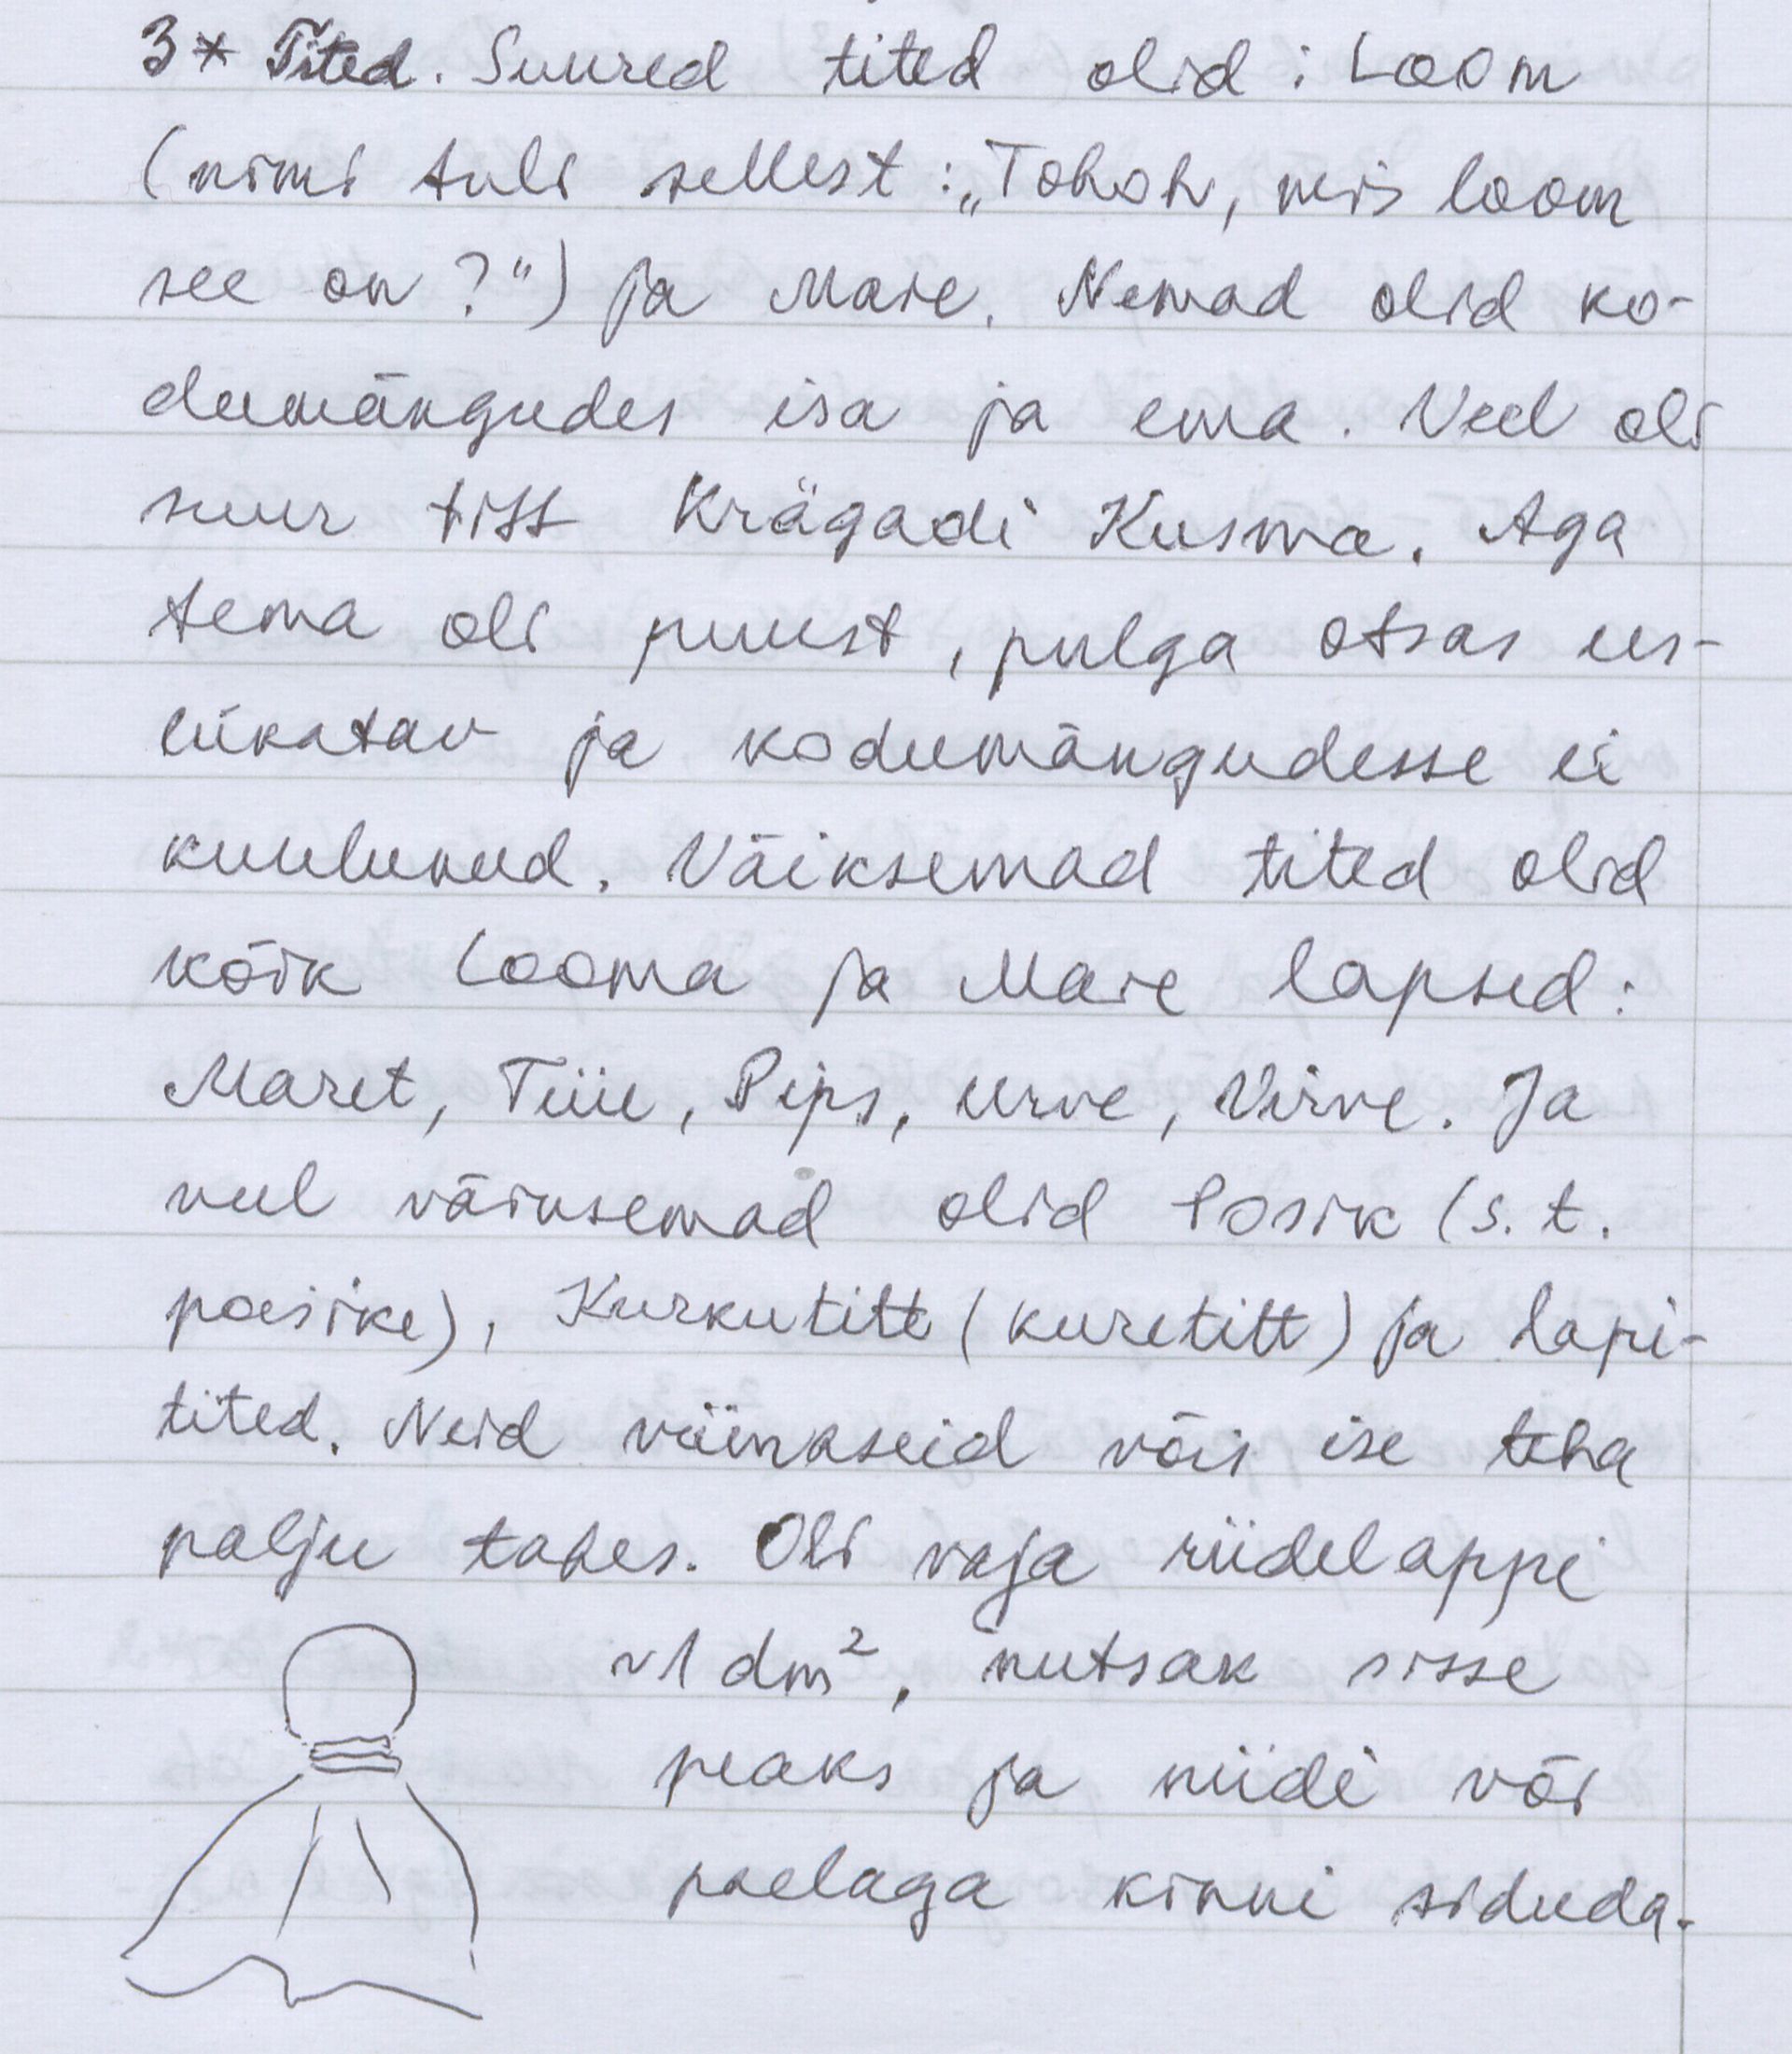 3* Tited. Suured tited olid: Loom
(nimi tuli sellest: „Tohoh, mis loom
see on?") ja Maie. Nemad olid ko-
dumängudes isa ja ema. Veel oli
suur titt Krägadi Kusma. Aga
tema oli puust, pulga otsas us-
lükatav ja kodumängudesse ei
kuulunud. Väiksemad tited olid
kõik Looma ja Maie lapsed:
Maret, Tiiu, Pips, Urve, Virve. Ja
veel väiksemad olid Posik (s.t.
poisike), Kurkutitt (kuretitt) ja lapi-
tited. Neid viimaseid võis ise teha
palju tahes. Oli vaja riidelappi
~1 dm², nutsak sisse
peaks ja niidi või
paelaga kinni siduda.